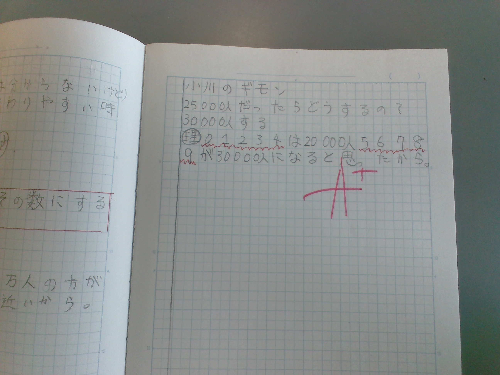 小川のギモン
25000人だったらどうするの?
30000人する
理 0 1 2 3 4は20000人 5 6 7 8
9が30000人になると思ったから。
A+
らない
わりやすい
その数にする
万人の方が
近いから。